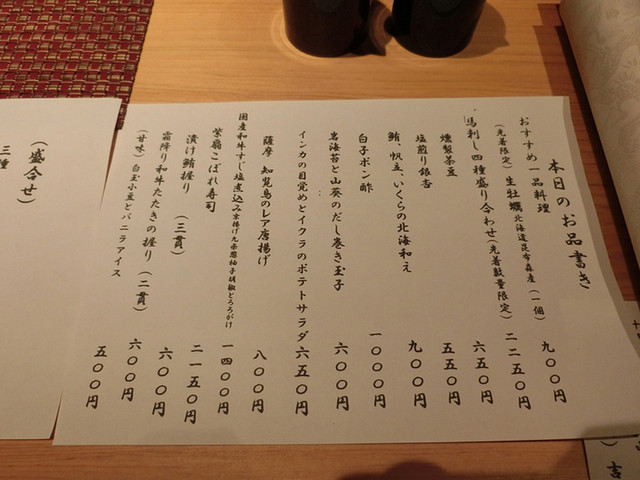 本日のお品書き
おすすめ一品料理
(先着限定) 生牡蠣 北海道昆布森産 (一個) 九〇〇円
馬刺し四種盛り合わせ(先着数量限定) 二二五〇円
燻製茶豆 六五〇円
塩煎り銀杏 五五〇円
鮪、帆立、いくらの北海和え 九〇〇円
白子ポン酢 一〇〇〇円
岩海苔と山葵のだし巻き玉子 六〇〇円
インカの目覚めとイクラのポテトサラダ 六五〇円
薩摩 知覧鳥のレア唐揚げ 八〇〇円
国産和牛すじ塩煮込み 京揚げ九条葱柚子胡椒とろろがけ 一四〇〇円
紫扇こぼれ寿司 二一五〇円
漬け鮪握り (三貫) 六〇〇円
霜降り和牛たたきの握り (二貫) 六〇〇円
(甘味) 白玉小豆とバニラアイス 五〇〇円
(盛合せ)
三種